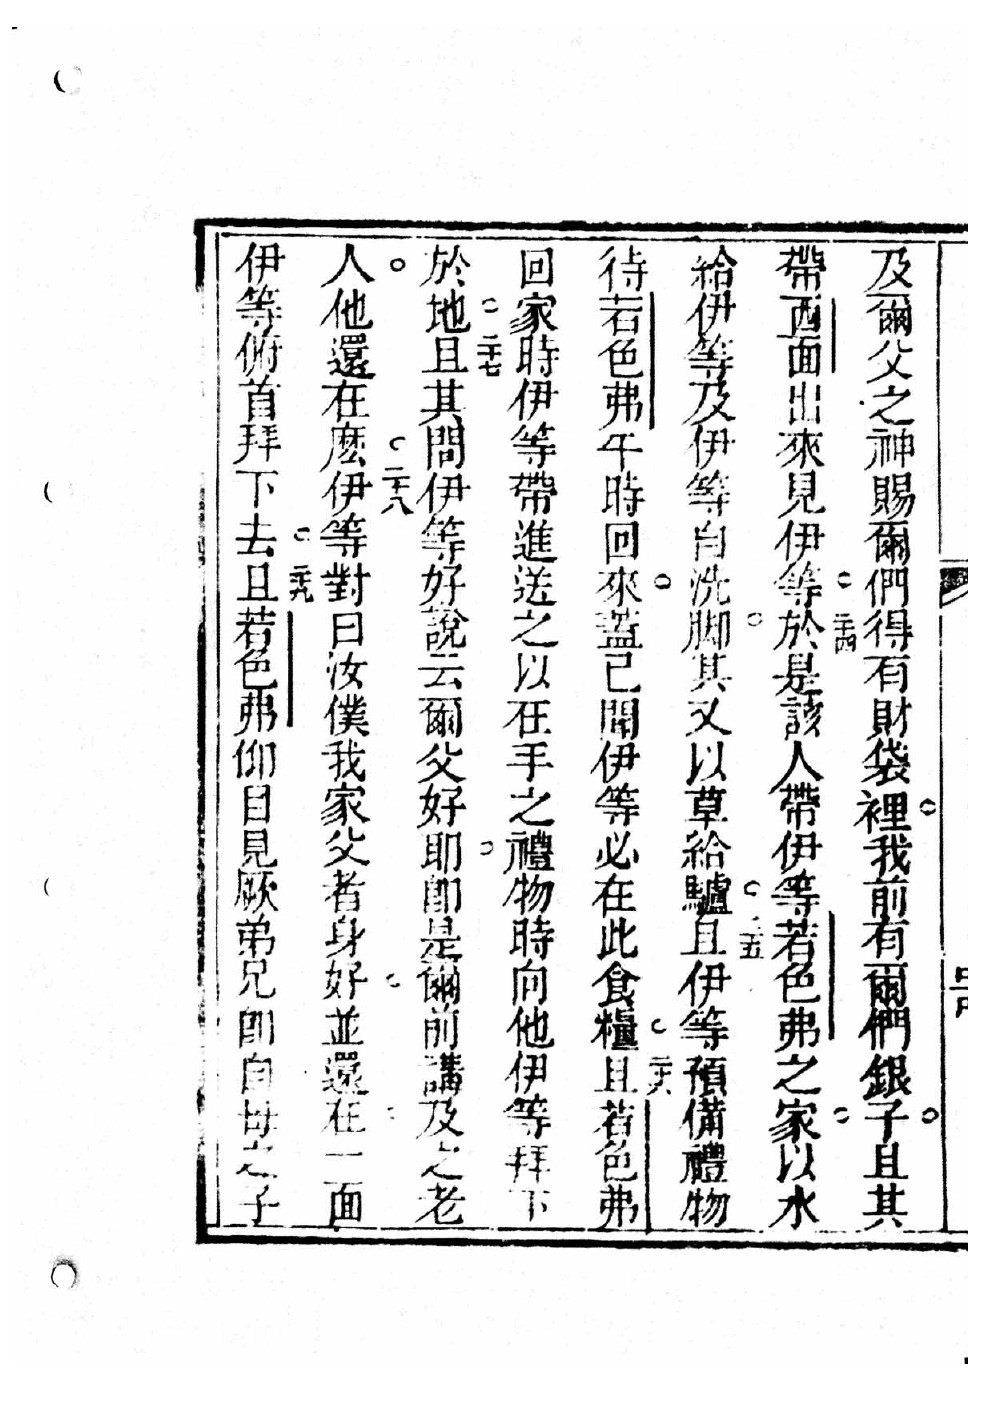 及爾父之神賜爾們得有財袋裡我前有爾們銀子且其
帶西面出來見伊等二十四於是該人帶伊等若色弗之家以水
給伊等及伊等自洗脚其又以草給驢二十五且伊等預備禮物
待若色弗午時回來蓋已聞伊等必在此食糧二十六且若色弗
回家時伊等帶進送之以在手之禮物時向他伊等拜下
於地二十七且其問伊等好說云爾父好耶卽是爾前講及之老
人他還在麽二十八伊等對曰汝僕我家父者身好並還在一面
伊等俯首拜下去二十九且若色弗仰目見厥弟兄卽自母之子